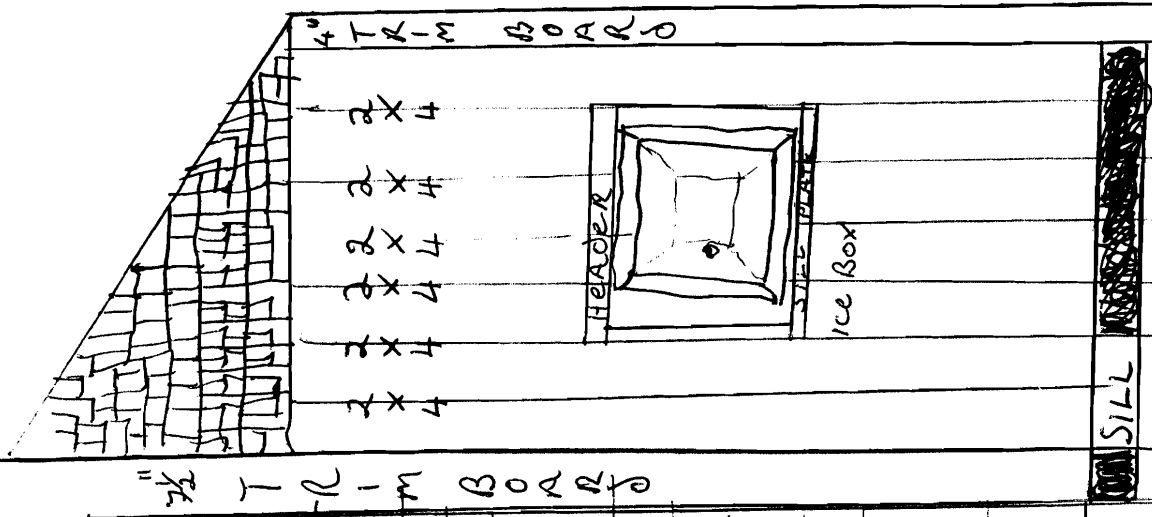 4" TRIM BOARD
2x4
2x4
2x4
2x4
2x4
2x4
HEADER
SILL PLATE
Ice Box
SILL
7½" TRIM BOARD